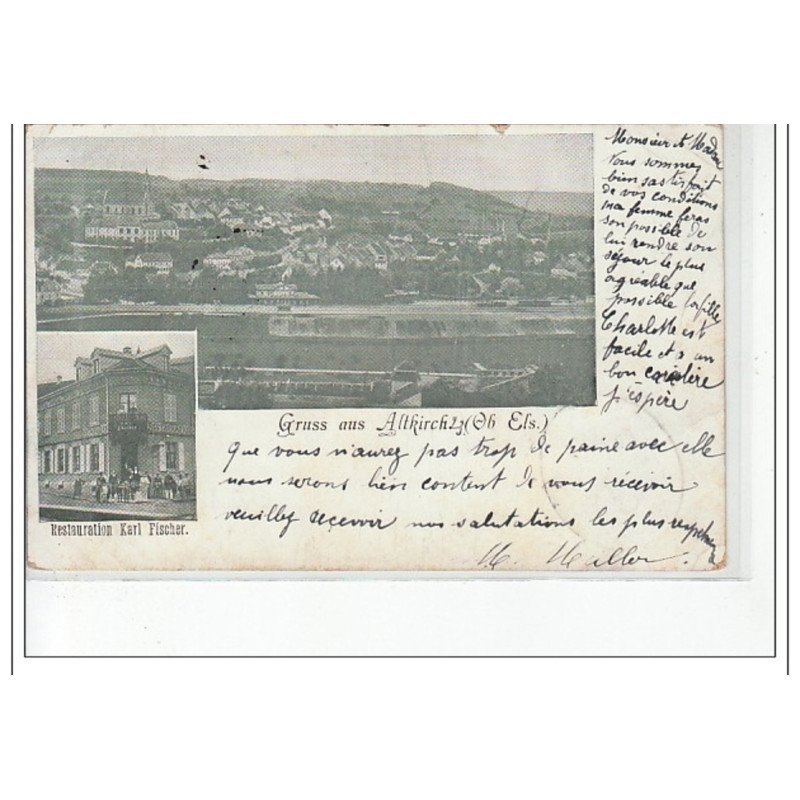 Monsieur et Madm
Vous sommes
bien sastisfait
de vos conditions
ma femme feras
son possible de
lui rendre son
séjour le plus
agréable que
possible la fille
Charlotte est
facile et a un
bon caractère
j'espère
Gruss aus Altkirch (Ob Els.)
que vous n'aurez pas trop de paine avec elle
nous serons bien content de vous récevoir
veuillez recevoir nos salutations les plus respetu
Restauration Karl Fischer.
M. Muller